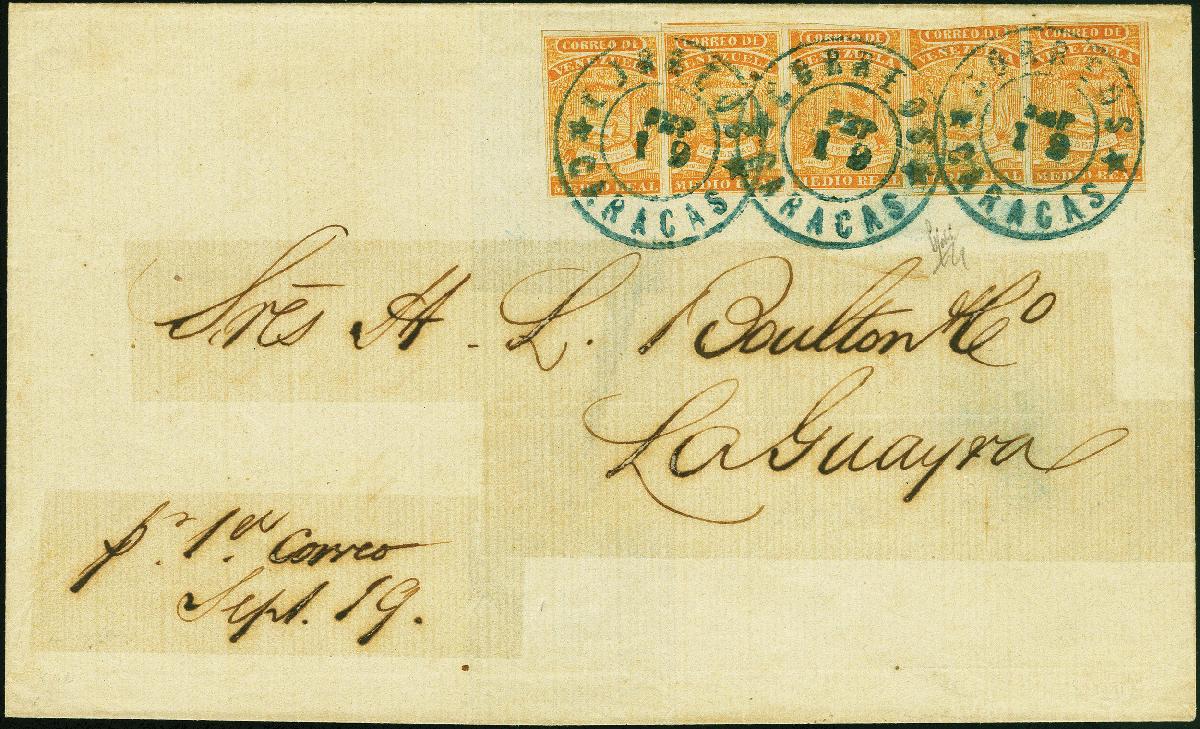 CORREO DE CORREO DE CORREO DE CORREO DE CORREO DE
VENEZUELA VENEZUELA VENEZUELA VENEZUELA VENEZUELA
MEDIO REAL MEDIO REAL MEDIO REAL MEDIO REAL MEDIO REAL
CORREOS CORREOS CORREOS
SEP SEP SEP
19 19 19
CARACAS CARACAS CARACAS
Srēs H. L. Boulton & Co
La Guayra
pr. 1er. Correo
Sept. 19.